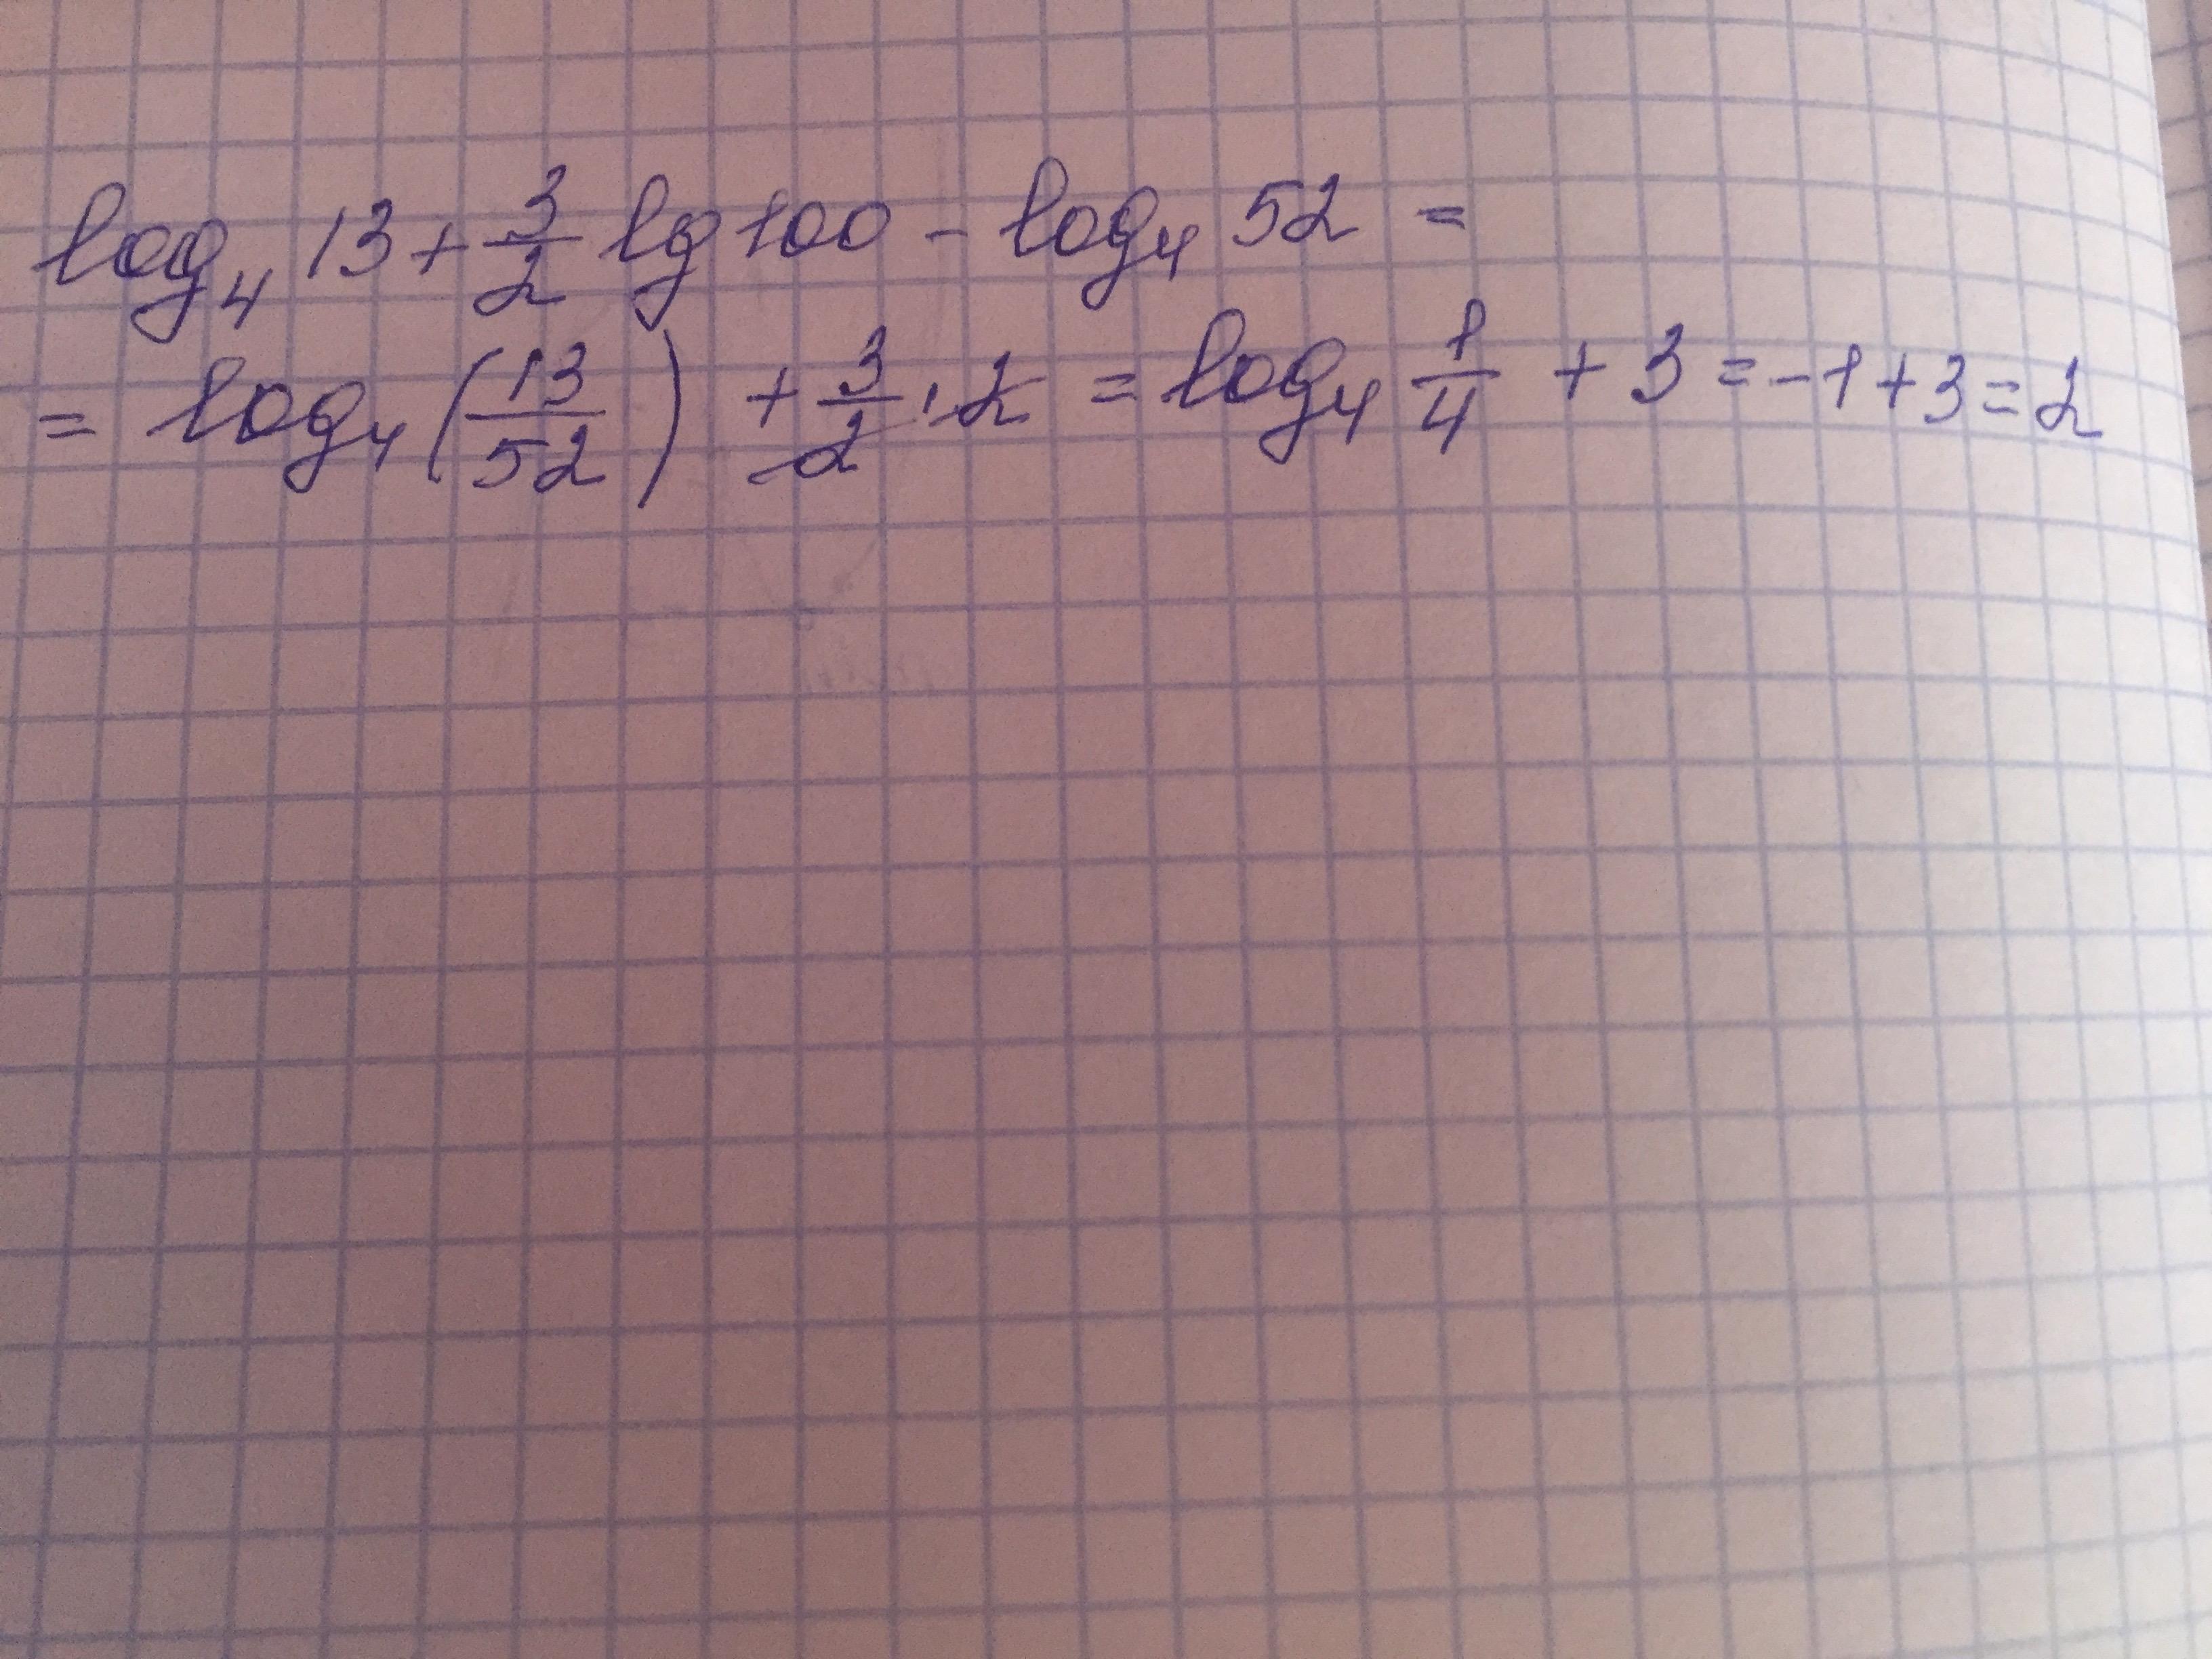 log₄ 13 + 3/2 lg 100 - log₄ 52 =
= log₄ (13/52) + 3/2 · 2 = log₄ 1/4 + 3 = -1 + 3 = 2